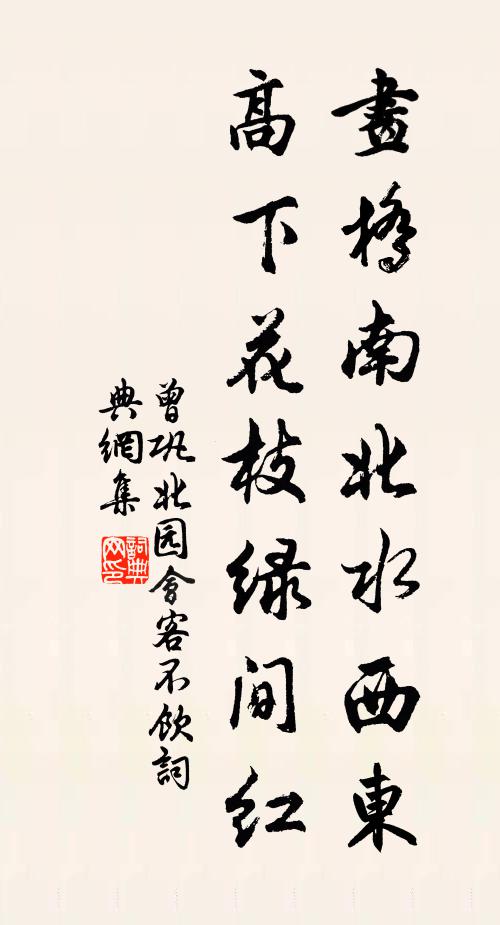 畫橋南北水西東
高下花枝緑間紅
曾巩北园會客不飲詞
典網集
詞典网印